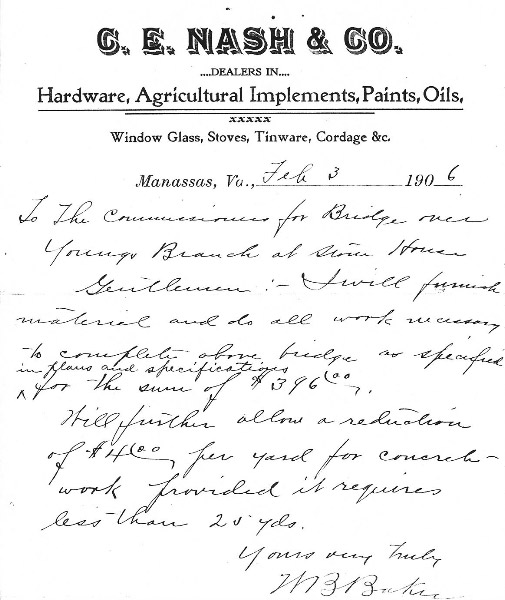 C. E. NASH & CO.
....DEALERS IN....
Hardware, Agricultural Implements, Paints, Oils,
xxxxx
Window Glass, Stoves, Tinware, Cordage &c.
Manassas, Va., Feb 3 1906
To The Commissioners for Bridge over
Youngs Branch at Stone House
Gentlemen :- I will furnish
material and do all work necessary
to complete above bridge as specified
in plans and specifications
^ for the sum of $396 00.
Will further allow a reduction
of $4 00 per yard for concrete
work provided it requires
less than 25 yds.
Yours very truly
W B Baker